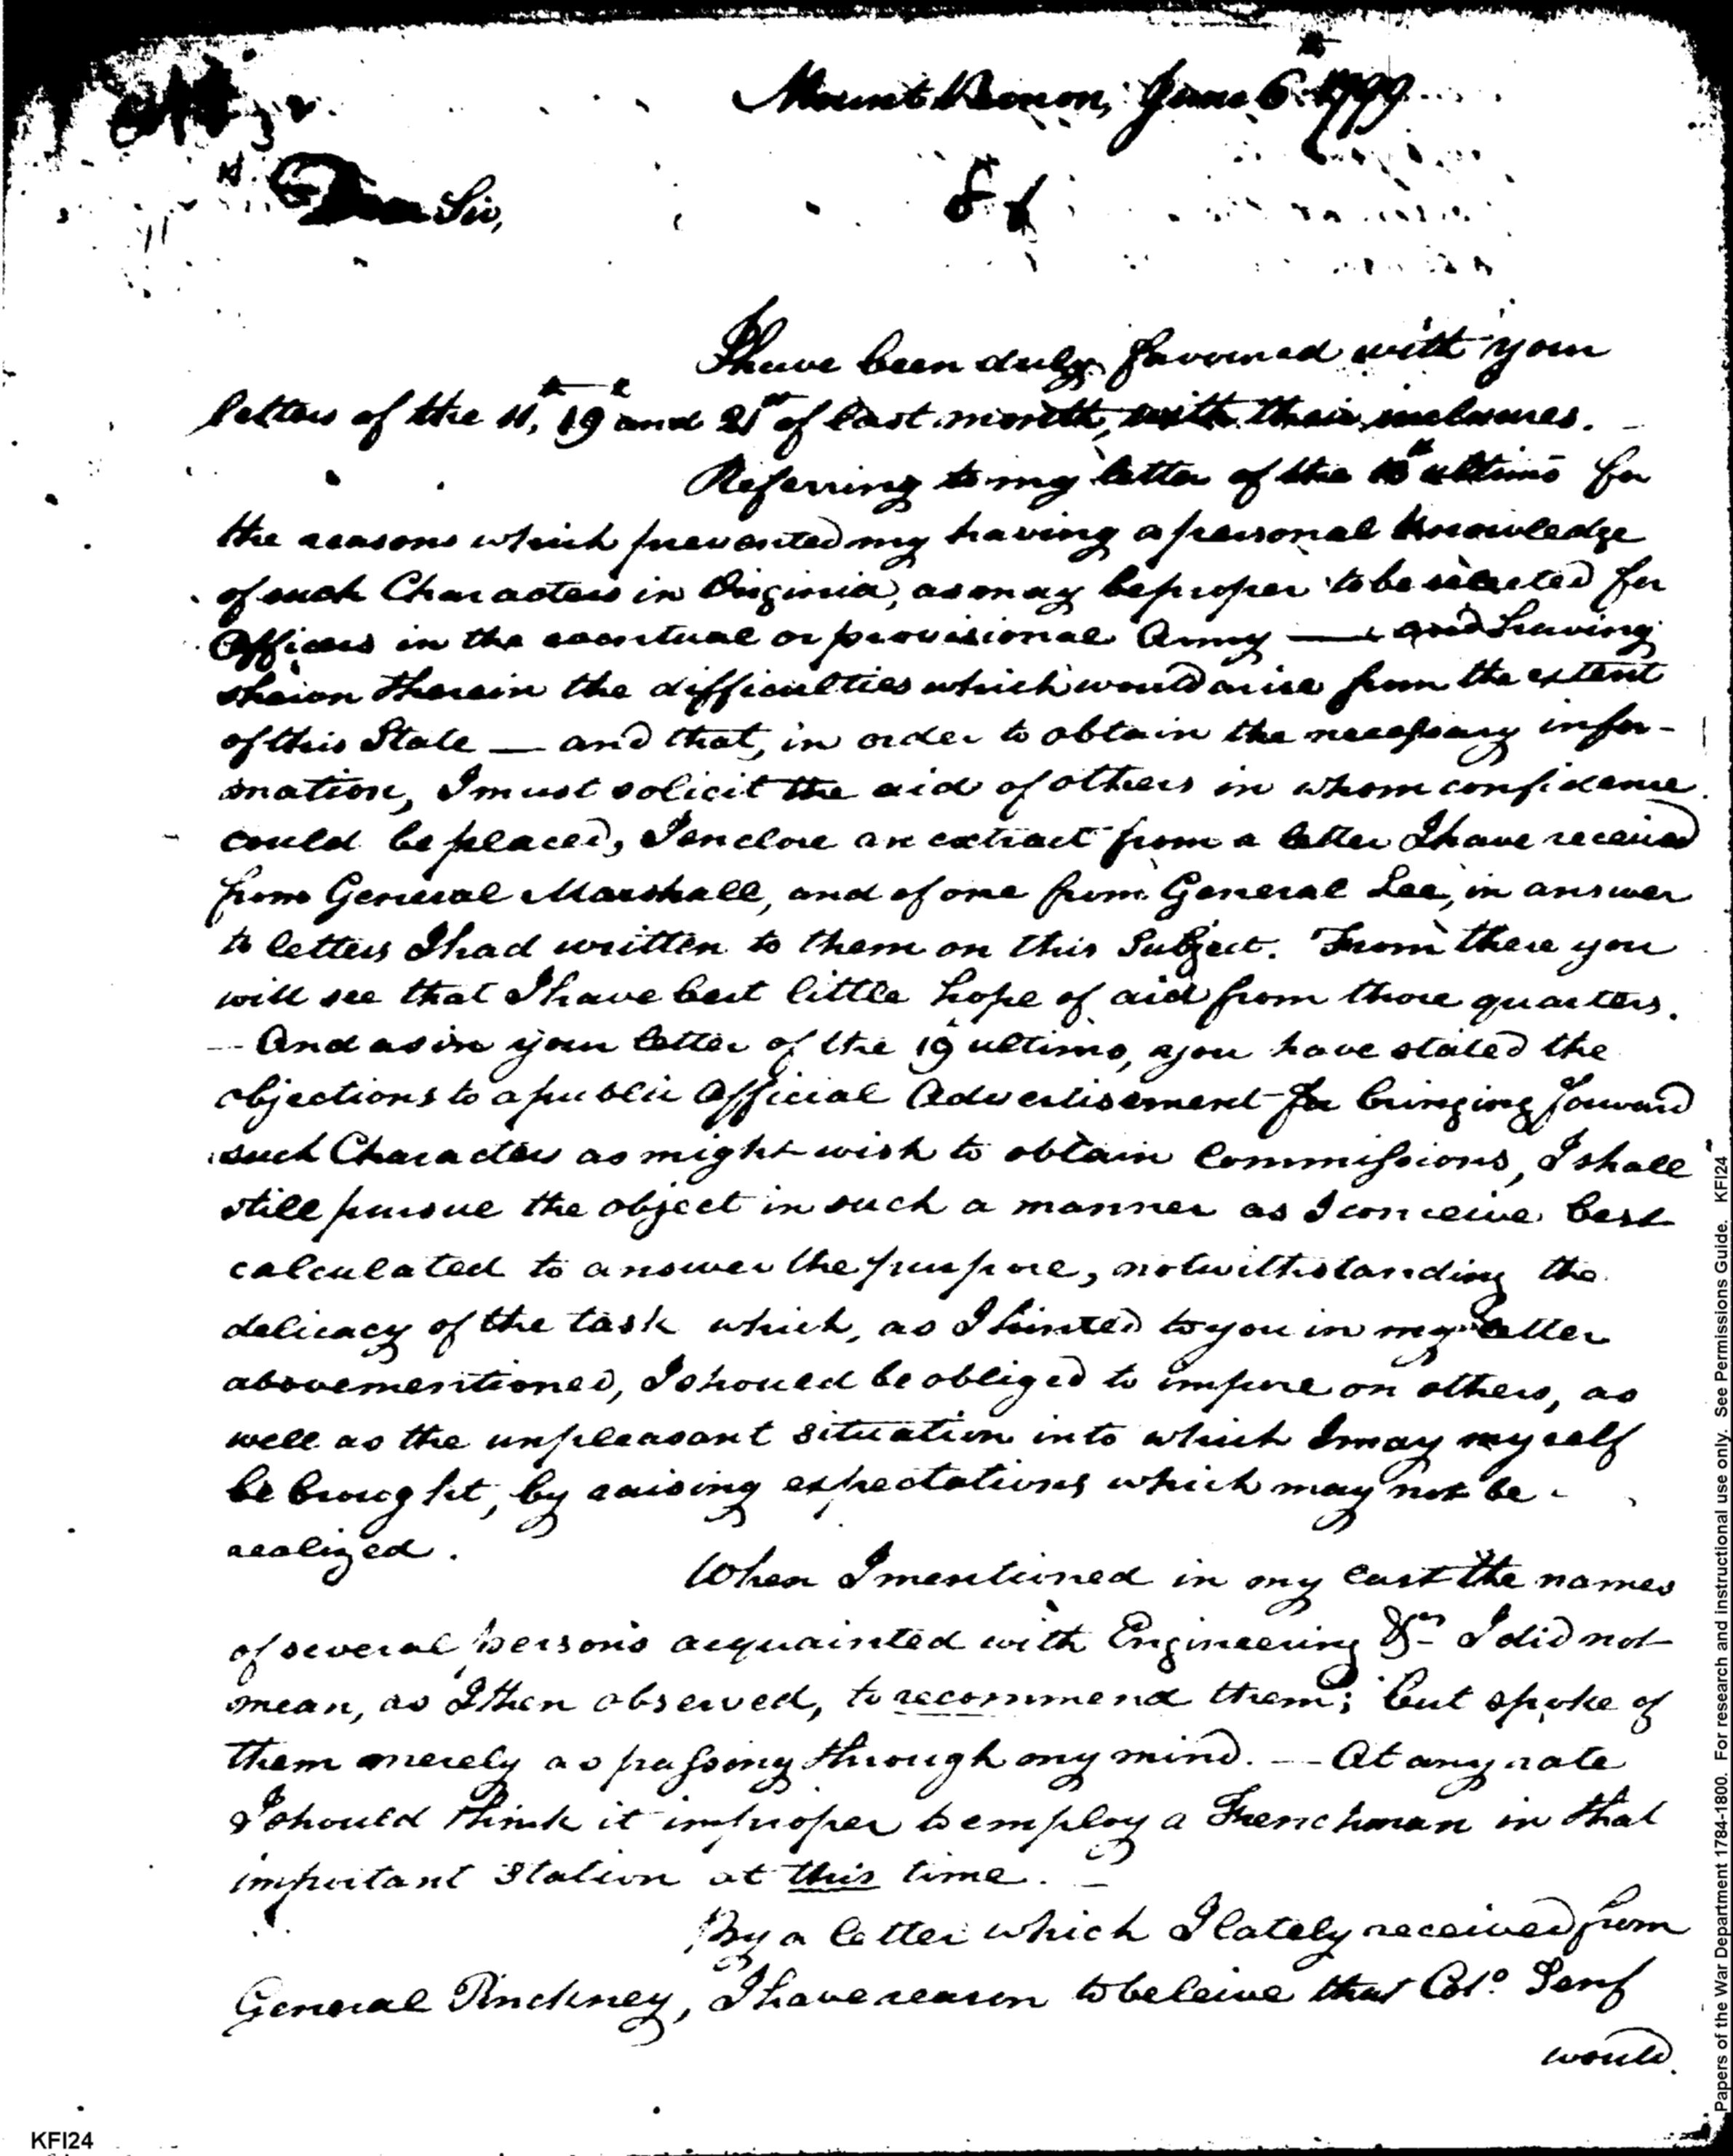 Mount Vernon, June 6th 1799
Dear Sir,
I have been duly favoured with your
letters of the 11th, 19th and 21st of last month, with their inclosures. –
Referring to my letter of the 13th ultimo for
the reasons which prevented my having a personal knowledge
of such Characters in Virginia, as may be proper to be selected for
Officers in the eventual or provisional Army — and having
shewn therein the difficulties which would arise from the extent
of this State — and that, in order to obtain the necessary infor-
mation, I must solicit the aid of others in whom confidence
could be placed, I enclose an extract from a letter I have received
from General Marshall, and of one from General Lee, in answer
to letters I had written to them on this Subject. From these you
will see that I have but little hope of aid from those quarters.
— And as in your letter of the 19 ultimo, you have stated the
objections to a public Official Advertisement for bringing forward
such Characters as might wish to obtain Commissions, I shall
still pursue the object in such a manner as I conceive best
calculated to answer the purpose, notwithstanding the
delicacy of the task which, as I hinted to you in my letter
abovementioned, I should be obliged to impose on others, as
well as the unpleasant situation into which I may myself
be brought, by raising expectations which may not be
realized.
When I mentioned in my last the names
of several persons acquainted with Engineering &ca I did not
mean, as I then observed, to recommend them; but spoke of
them merely as passing through my mind. — At any rate
I should think it improper to employ a Frenchman in that
important Station at this time. –
By a letter which I lately received from
General Pinckney, I have reason to beleive that Colo. Senf
would
Papers of the War Department 1784-1800. For research and instructional use only. See Permissions Guide. KFI24
KFI24